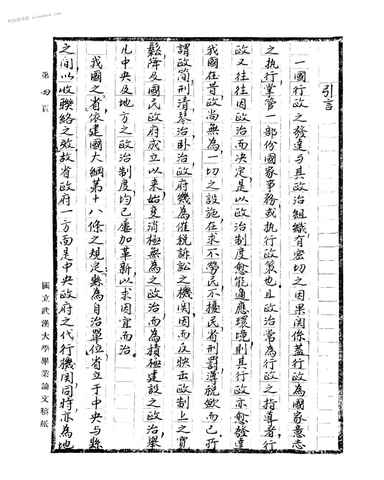 引言
一國行政之發達與其政治組織有密切之因果関係蓋行政為國家意志
之执行掌管一部份國家事務或执行政策也且政治常為行政之指導者行
政又往往因政治而决定是以政治制度愈能適應環境則其行政亦愈發達
我國在昔政尚無為一切之設施在求不勞民不擾民省刑罰薄税歛而已所
謂政简刑清琴治卧治政府幾為催税訴訟之機関因而反映出政制上之實
鬆降及國民政府成立以来始变消極無為之政治而為積極建設之政治舉
凡中央及地方之政治制度均已屡加革新以求因宜而治
我國之省依建國大綱第十八條之規定縣為自治單位省立于中央与縣
之间以收聯絡之效故省政府一方面是中央政府之代行機関同時亦為地
第 頁
國立武漢大學畢業論文稿紙